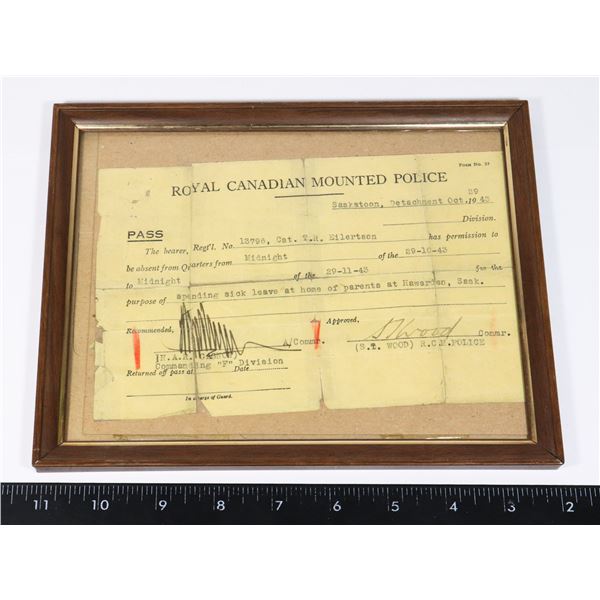 Form No. 37
ROYAL CANADIAN MOUNTED POLICE
29
Saskatoon, Detachment Oct. 1943
Division.
PASS
The bearer, Regt'l. No. 13796, Cst. T.R. Eilertson has permission to
be absent from Quarters from Midnight of the 29-10-43
to Midnight of the 29-11-43 for the
purpose of spending sick leave at home of parents at Hawarden, Sask.
Recommended, Approved,
A/Commr. S T Wood Commr.
(S.T. WOOD) R.C.M.POLICE
Commanding "F" Division
Returned off pass at Date
In charge of Guard.
11 10 9 8 7 6 5 4 3 2